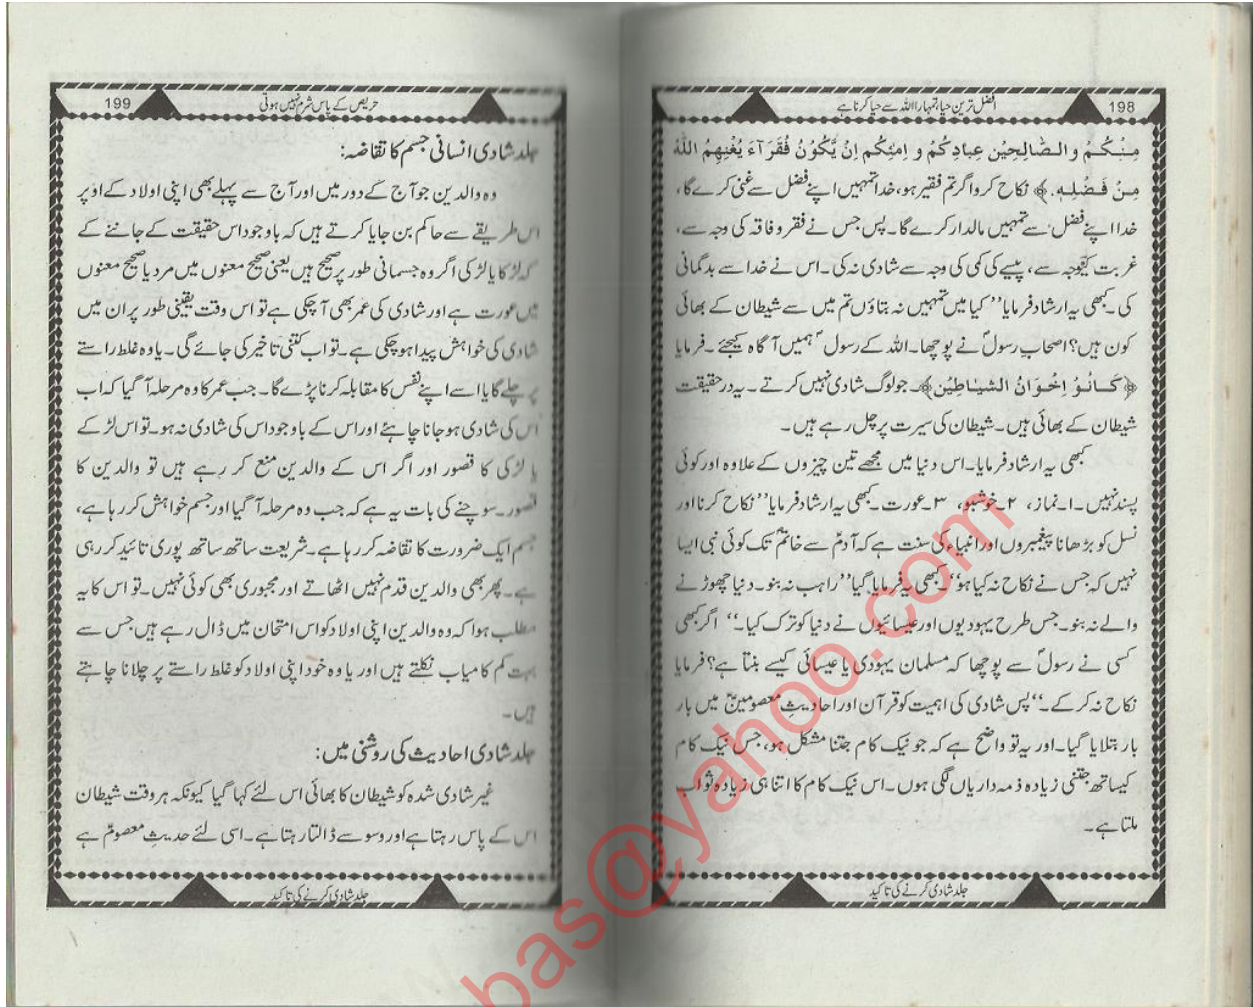 198
افضل ترین حیا، تمہارا اللہ سے حیا کرنا ہے
مِنْکُمْ والصَّالِحِیْن عِبادِکُمْ و اِمٰئِکُم اِنْ یَّکُوْنُ فُقَرَآءَ یُغْنِھِمُ اللّٰهُ
مِنْ فَضْلِہٖ.﴾ نکاح کرو اگر تم فقیر ہو، خدا تمہیں اپنے فضل سے غنی کرے گا،
خدا اپنے فضل سے تمہیں مالدار کرے گا۔ پس جس نے فقر و فاقہ کی وجہ سے،
غربت کیوجہ سے، پیسے کی کمی کی وجہ سے شادی نہ کی۔ اس نے خدا سے بدگمانی
کی۔ کبھی یہ ارشاد فرمایا ”کیا میں تمہیں نہ بتاؤں تم میں سے شیطان کے بھائی
کون ہیں؟ اصحاب رسولؐ نے پوچھا۔ اللہ کے رسولؐ ہمیں آگاہ کیجئے۔ فرمایا
﴿کَانُوْ اِخْوَانُ الشیاطِیْن﴾۔ جو لوگ شادی نہیں کرتے۔ یہ در حقیقت
شیطان کے بھائی ہیں۔ شیطان کی سیرت پر چل رہے ہیں۔
کبھی یہ ارشاد فرمایا۔ اس دنیا میں مجھے تین چیزوں کے علاوہ اور کوئی
پسند نہیں۔ ۱۔ نماز، ۲۔ خوشبو، ۳۔ عورت۔ کبھی یہ ارشاد فرمایا ”نکاح کرنا اور
نسل کو بڑھانا پیغمبروں اور انبیاء کی سنت ہے کہ آدمؑ سے خاتمؐ تک کوئی نبی ایسا
نہیں کہ جس نے نکاح نہ کیا ہو“ کبھی یہ فرمایا گیا ”راہب نہ بنو۔ دنیا چھوڑنے
والے نہ بنو۔ جس طرح یہودیوں اور عیسائیوں نے دنیا کو ترک کیا۔“ اگر کبھی
کسی نے رسولؐ سے پوچھا کہ مسلمان یہودی یا عیسائی کیسے بنتا ہے؟ فرمایا
نکاح نہ کر کے۔“ پس شادی کی اہمیت کو قرآن اور احادیثِ معصومینؑ میں بار
بار بتلایا گیا۔ اور یہ تو واضح ہے کہ جو نیک کام جتنا مشکل ہو، جس نیک کام
کیساتھ جتنی زیادہ ذمہ داریاں لگی ہوں۔ اس نیک کام کا اتنا ہی زیادہ ثواب
ملتا ہے۔
جلد شادی کرنے کی تاکید
199
حریص کے پاس شرم نہیں ہوتی
جلد شادی انسانی جسم کا تقاضہ:
وہ والدین جو آج کے دور میں اور آج سے پہلے بھی اپنی اولاد کے اوپر
اس طریقے سے حاکم بن جایا کرتے ہیں کہ باوجود اس حقیقت کے جاننے کے
کہ لڑکا یا لڑکی اگر وہ جسمانی طور پر صحیح ہیں یعنی صحیح معنوں میں مرد یا صحیح معنوں
میں عورت ہے اور شادی کی عمر بھی آچکی ہے تو اس وقت یقینی طور پر ان میں
شادی کی خواہش پیدا ہو چکی ہے۔ تو اب کتنی تاخیر کی جائے گی۔ یا وہ غلط راستے
پر چلے گا یا اسے اپنے نفس کا مقابلہ کرنا پڑے گا۔ جب عمر کا وہ مرحلہ آگیا کہ اب
اس کی شادی ہو جانا چاہئے اور اس کے باوجود اس کی شادی نہ ہو۔ تو اس لڑکے
یا لڑکی کا قصور اور اگر اس کے والدین منع کر رہے ہیں تو والدین کا
قصور۔ سوچنے کی بات یہ ہے کہ جب وہ مرحلہ آگیا اور جسم خواہش کر رہا ہے،
جسم ایک ضرورت کا تقاضہ کر رہا ہے۔ شریعت ساتھ ساتھ پوری تائید کر رہی
ہے۔ پھر بھی والدین قدم نہیں اٹھاتے اور مجبوری بھی کوئی نہیں۔ تو اس کا یہ
مطلب ہوا کہ وہ والدین اپنی اولاد کو اس امتحان میں ڈال رہے ہیں جس سے
بہت کم کامیاب نکلتے ہیں اور یا وہ خود اپنی اولاد کو غلط راستے پر چلانا چاہتے
ہیں۔
جلد شادی احادیث کی روشنی میں:
غیر شادی شدہ کو شیطان کا بھائی اس لئے کہا گیا کیونکہ ہر وقت شیطان
اس کے پاس رہتا ہے اور وسوسے ڈالتا رہتا ہے۔ اسی لئے حدیثِ معصومؑ ہے
جلد شادی کرنے کی تاکید
bas@yahoo.com